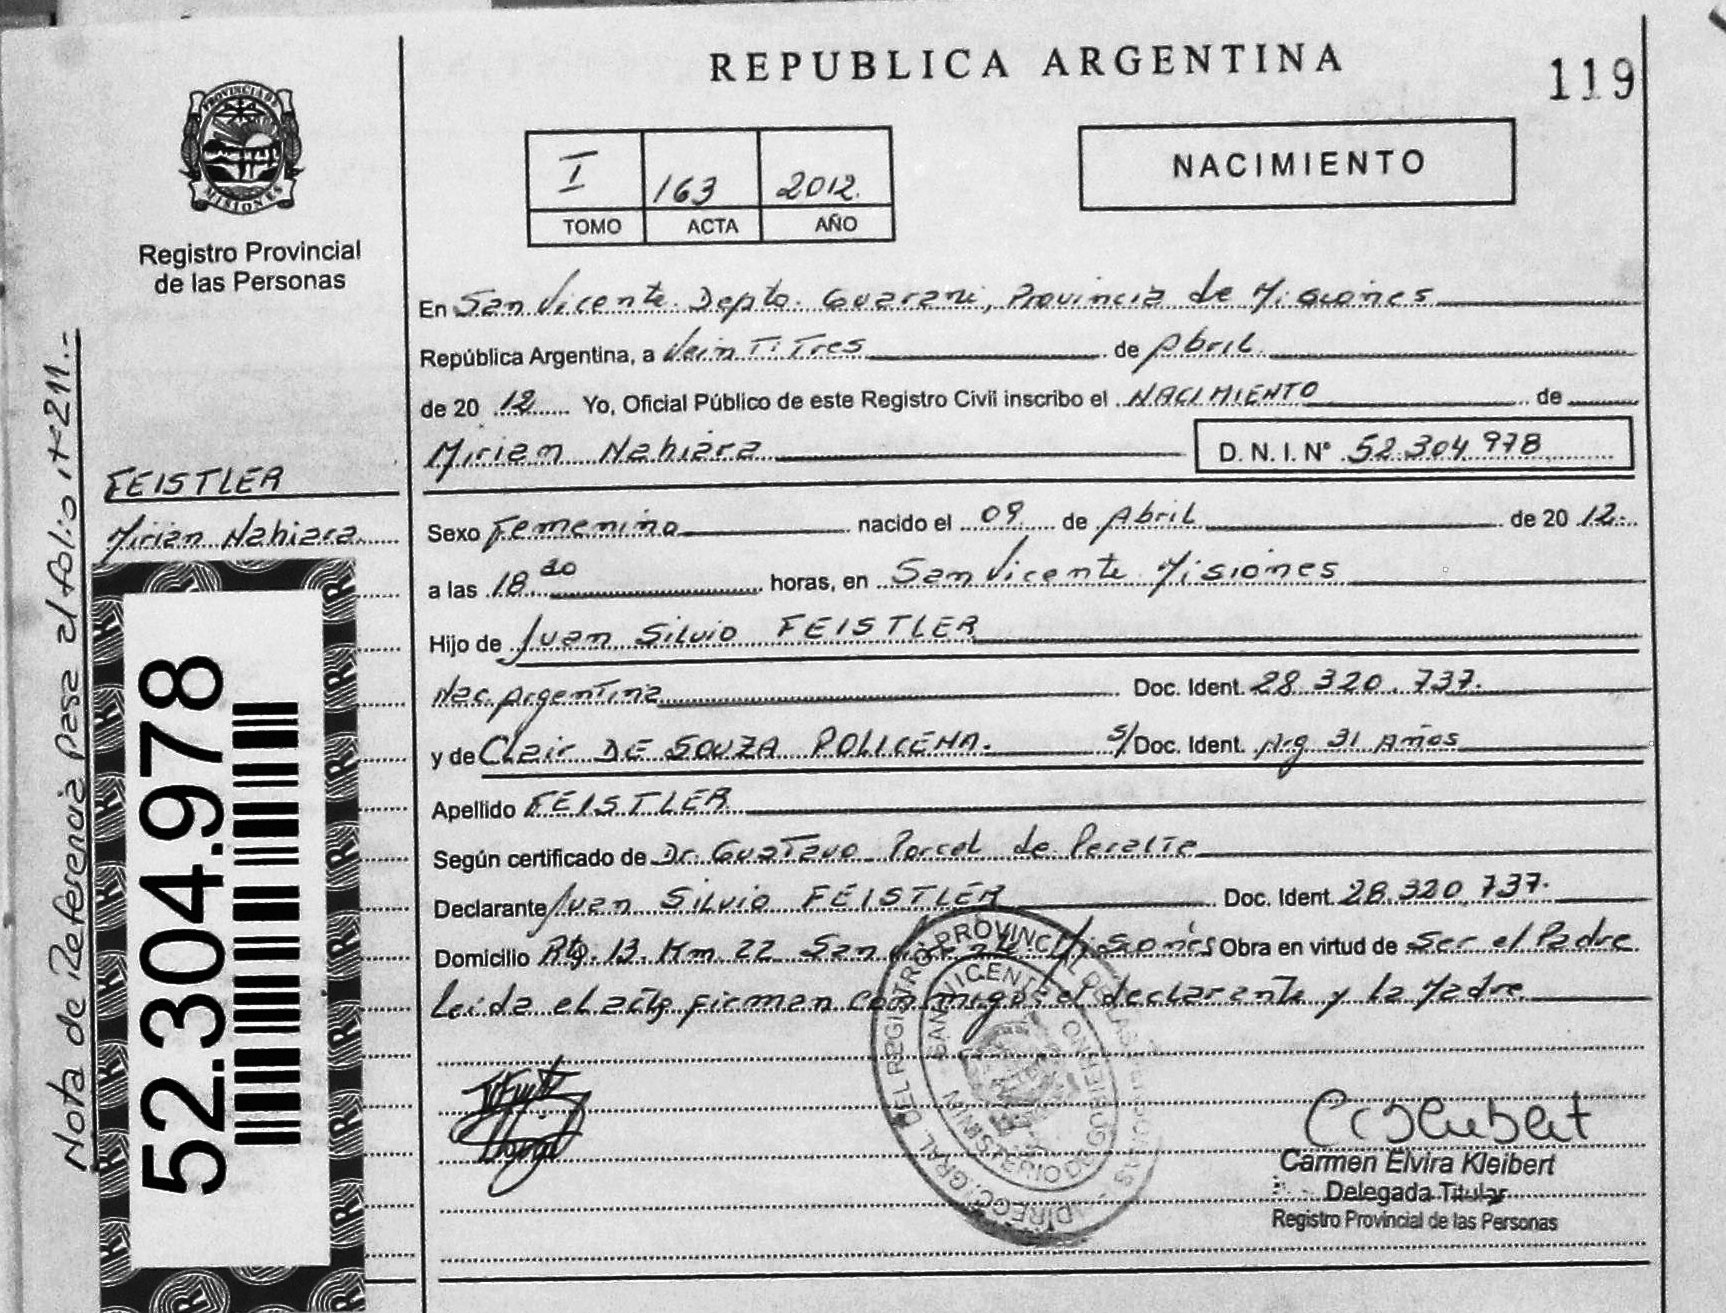 REPUBLICA ARGENTINA
119
PROVINCIA DE
MISIONES
Registro Provincial
de las Personas
I 163 2012.
TOMO ACTA AÑO
NACIMIENTO
En San Vicente Depto. Guarani, Provincia de Misiones
República Argentina, a VeinTiTres de Abril
de 20 12 Yo, Oficial Público de este Registro Civil inscribo el NACIMIENTO de
Miriam Nahiara D. N. I. Nº 52.304.978
FEISTLER
Mirian Nahiara
Sexo Femenino nacido el 09 de Abril de 20 12.
a las 18. horas, en San Vicente Misiones
Hijo de Juan Silvio FEISTLER
Nac. Argentina Doc. Ident. 28.320.737.
y de Clair DE SOUZA POLICENA. s/Doc. Ident. Arg 31 Años
Apellido FEISTLER
Según certificado de Dr. Gustavo Porcel de Peralta
Declarante Juan Silvio FEISTLER Doc. Ident. 28.320.737.
Domicilio Rta. 13. Km 22 San Vicente Misiones Obra en virtud de Ser el Padre
Leida el acta firman conmigo el declarante y la Madre
Nota de Referencia Pasa al folio Nº 211.-
52.304.978
DIRECC. GRAL. DEL REGISTRO PROVINCIAL DE LAS PERSONAS
SAN VICENTE
MINISTERIO DE GOBIERNO
Carmen Elvira Kleibert
Delegada Titular
Registro Provincial de las Personas